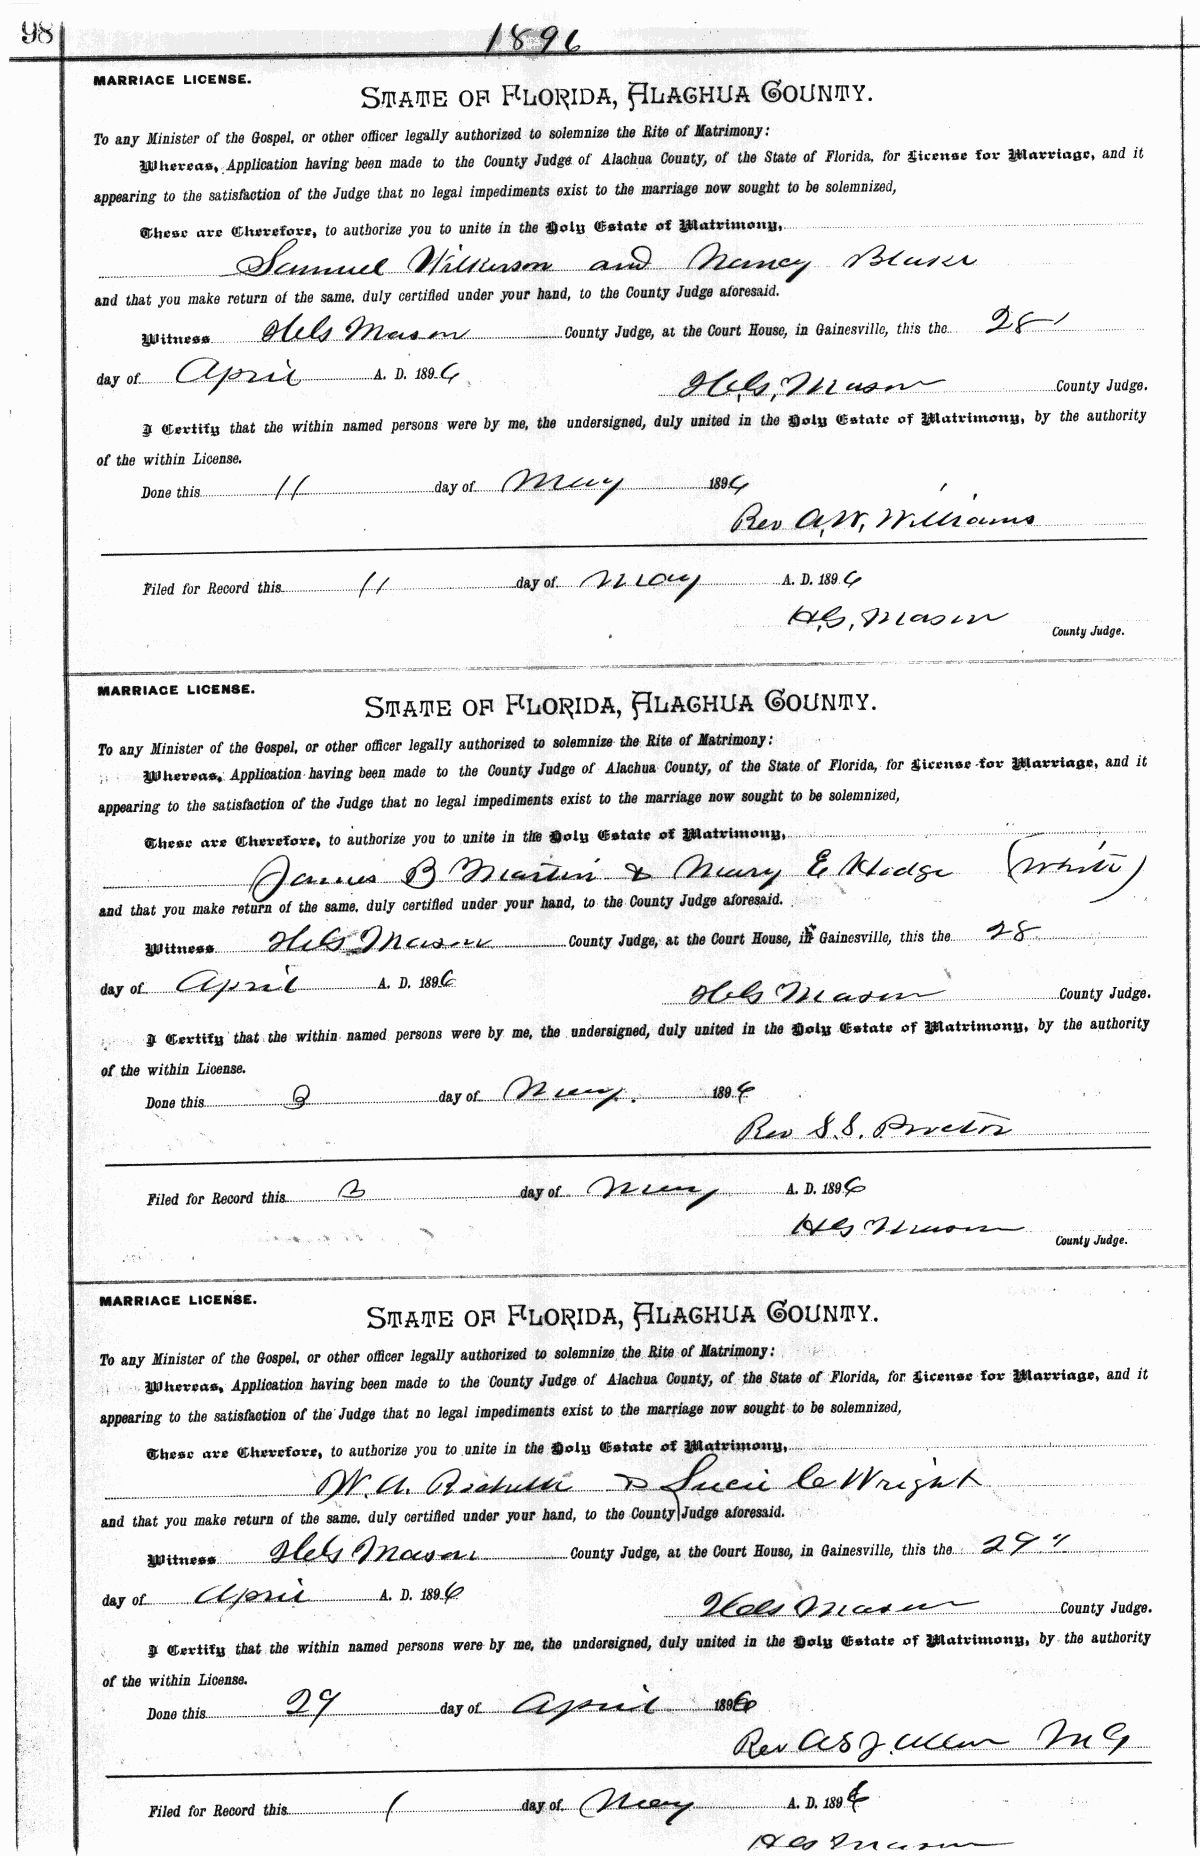 98
1896
MARRIAGE LICENSE.
STATE OF FLORIDA, ALACHUA COUNTY.
To any Minister of the Gospel, or other officer legally authorized to solemnize the Rite of Matrimony:
Whereas, Application having been made to the County Judge of Alachua County, of the State of Florida, for License for Marriage, and it
appearing to the satisfaction of the Judge that no legal impediments exist to the marriage now sought to be solemnized,
These are Therefore, to authorize you to unite in the Holy Estate of Matrimony,
Samuel Wilkerson and Nancy Blake
and that you make return of the same, duly certified under your hand, to the County Judge aforesaid.
Witness H.G. Mason County Judge, at the Court House, in Gainesville, this the 28
day of April A. D. 1896
H.G. Mason County Judge.
I Certify that the within named persons were by me, the undersigned, duly united in the Holy Estate of Matrimony, by the authority
of the within License.
Done this 11 day of May 1896
Rev A.W. Williams
Filed for Record this 11 day of May A. D. 1896
H.G. Mason
County Judge.
MARRIAGE LICENSE.
STATE OF FLORIDA, ALACHUA COUNTY.
To any Minister of the Gospel, or other officer legally authorized to solemnize the Rite of Matrimony:
Whereas, Application having been made to the County Judge of Alachua County, of the State of Florida, for License for Marriage, and it
appearing to the satisfaction of the Judge that no legal impediments exist to the marriage now sought to be solemnized,
These are Therefore, to authorize you to unite in the Holy Estate of Matrimony,
James B Martin & Mary E Hodge (White)
and that you make return of the same, duly certified under your hand, to the County Judge aforesaid.
Witness H G Mason County Judge, at the Court House, in Gainesville, this the 28
day of April A. D. 1896
H G Mason County Judge.
I Certify that the within named persons were by me, the undersigned, duly united in the Holy Estate of Matrimony, by the authority
of the within License.
Done this 3 day of May 1896
Rev S.S. Proctor
Filed for Record this 3 day of May A. D. 1896
H G Mason
County Judge.
MARRIAGE LICENSE.
STATE OF FLORIDA, ALACHUA COUNTY.
To any Minister of the Gospel, or other officer legally authorized to solemnize the Rite of Matrimony:
Whereas, Application having been made to the County Judge of Alachua County, of the State of Florida, for License for Marriage, and it
appearing to the satisfaction of the Judge that no legal impediments exist to the marriage now sought to be solemnized,
These are Therefore, to authorize you to unite in the Holy Estate of Matrimony,
W. A. & Lucie C Wright
and that you make return of the same, duly certified under your hand, to the County Judge aforesaid.
Witness H G Mason County Judge, at the Court House, in Gainesville, this the 29 "
day of April A. D. 1896
H G Mason County Judge.
I Certify that the within named persons were by me, the undersigned, duly united in the Holy Estate of Matrimony, by the authority
of the within License.
Done this 29 day of April 1896
Rev Allen M G
Filed for Record this 1 day of May A. D. 1896
H G Mason